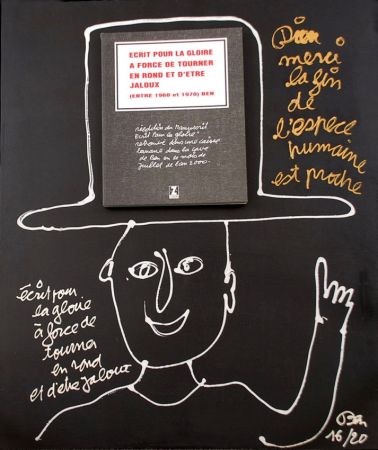 ECRIT POUR LA GLOIRE
A FORCE DE TOURNER
EN ROND ET D'ETRE
JALOUX
(ENTRE 1960 et 1970) BEN
réédition du Manuscrit
Ecrit Pour la gloire
retrouvé dans une caisse
dans la cave
de Ben en ce mois de
juillet de l'an 2000.
Z
Dieu
merci
la fin
de
l'espece
humaine
est proche
écrit pour
la gloire
à force de
tourner
en rond
et d'etre jaloux
Ben
16/20